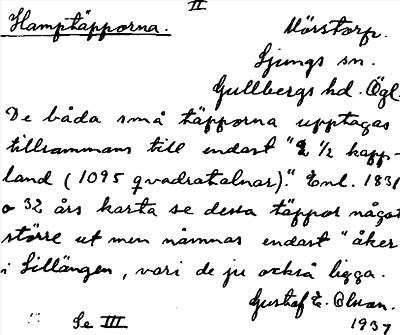 II
Hamptäpporna.
Mörstorp.
Ljungs sn.
Gullbergs hd. Ögl.
De båda små täpporna upptagas
tillsammans till endast "2 1/2 kapp-
land (1095 qvadratalnar)." Enl. 1831
o 32 års karta se dessa täppor något
större ut men nämnas endast "åker
i Lillängen, vari de ju också ligga.
Gustaf E. Olson.
Se III
1937